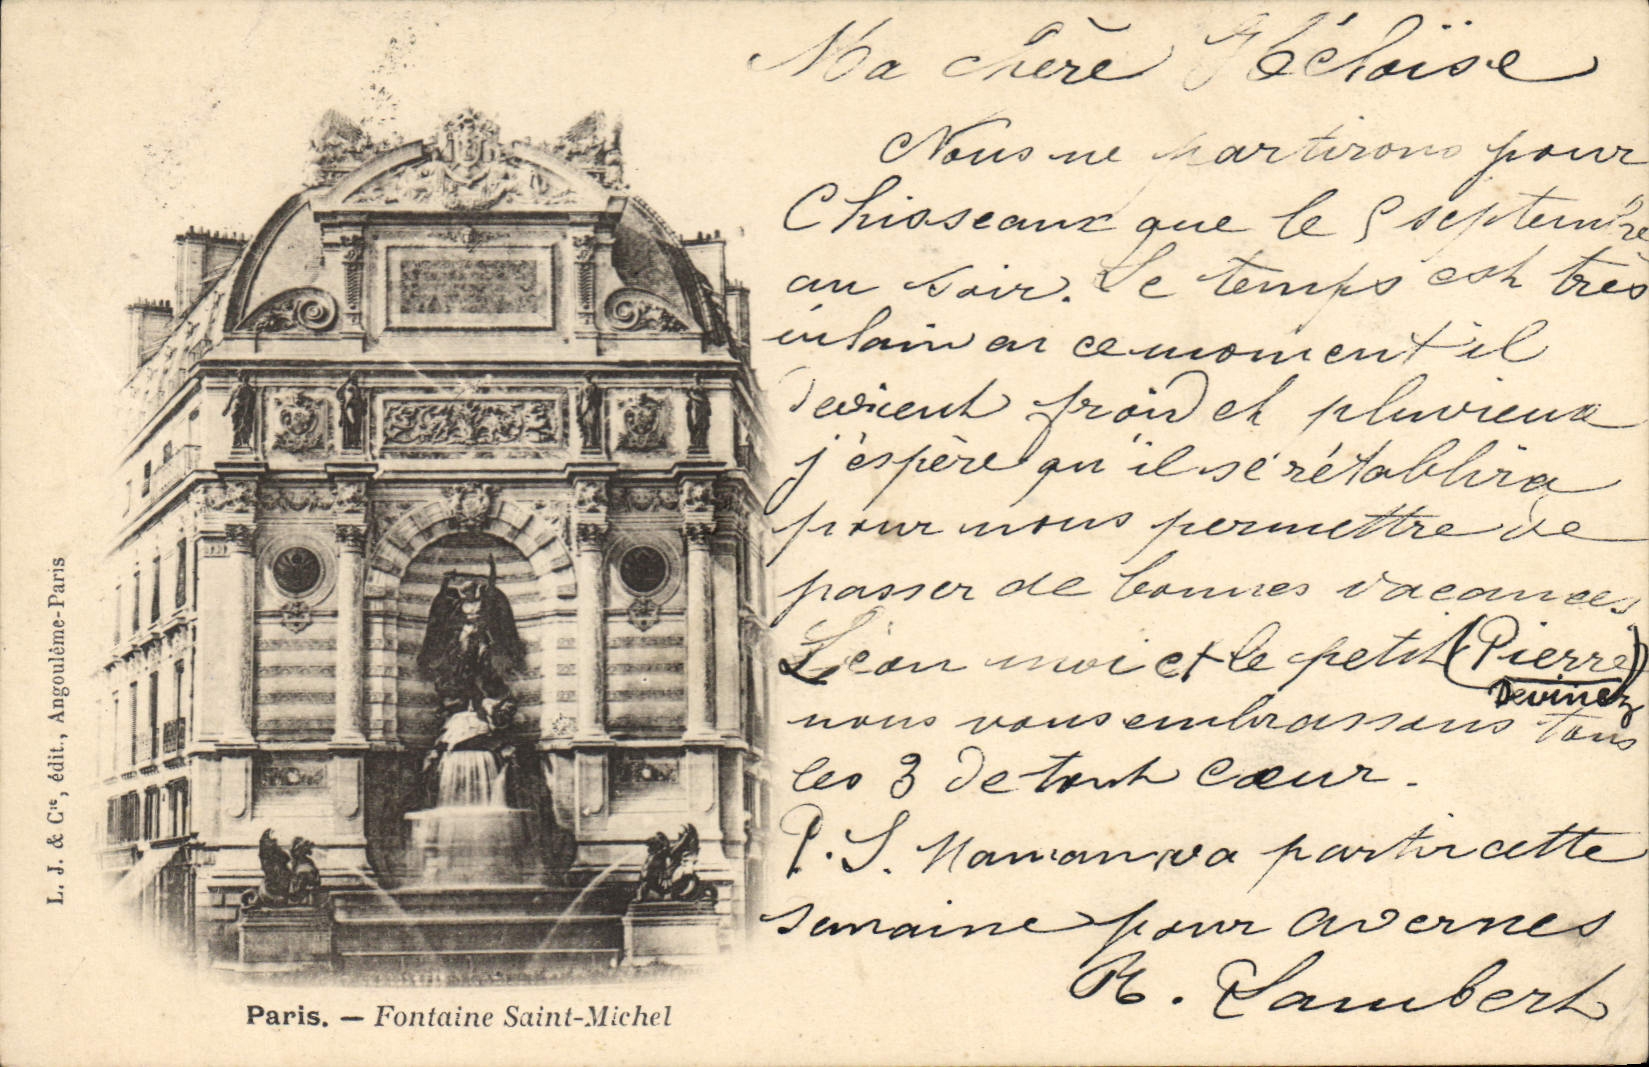 Ma chère Héloïse
Nous ne partirons pour
Chisseaux que le 5 septembre
au soir. Le temps est très
vilain en ce moment il
devient froid et pluvieux
j'espère qu'il se rétablira
pour nous permettre de
passer de bonnes vacances
Léon moi et le petit (Pierre)
Devinez
nous vous embrassons tous
les 3 de tout cœur.
P.S. Maman va partir cette
semaine pour Avernes
H. Lambert
L. J. & Cie, édit., Angoulême-Paris
Paris. — Fontaine Saint-Michel